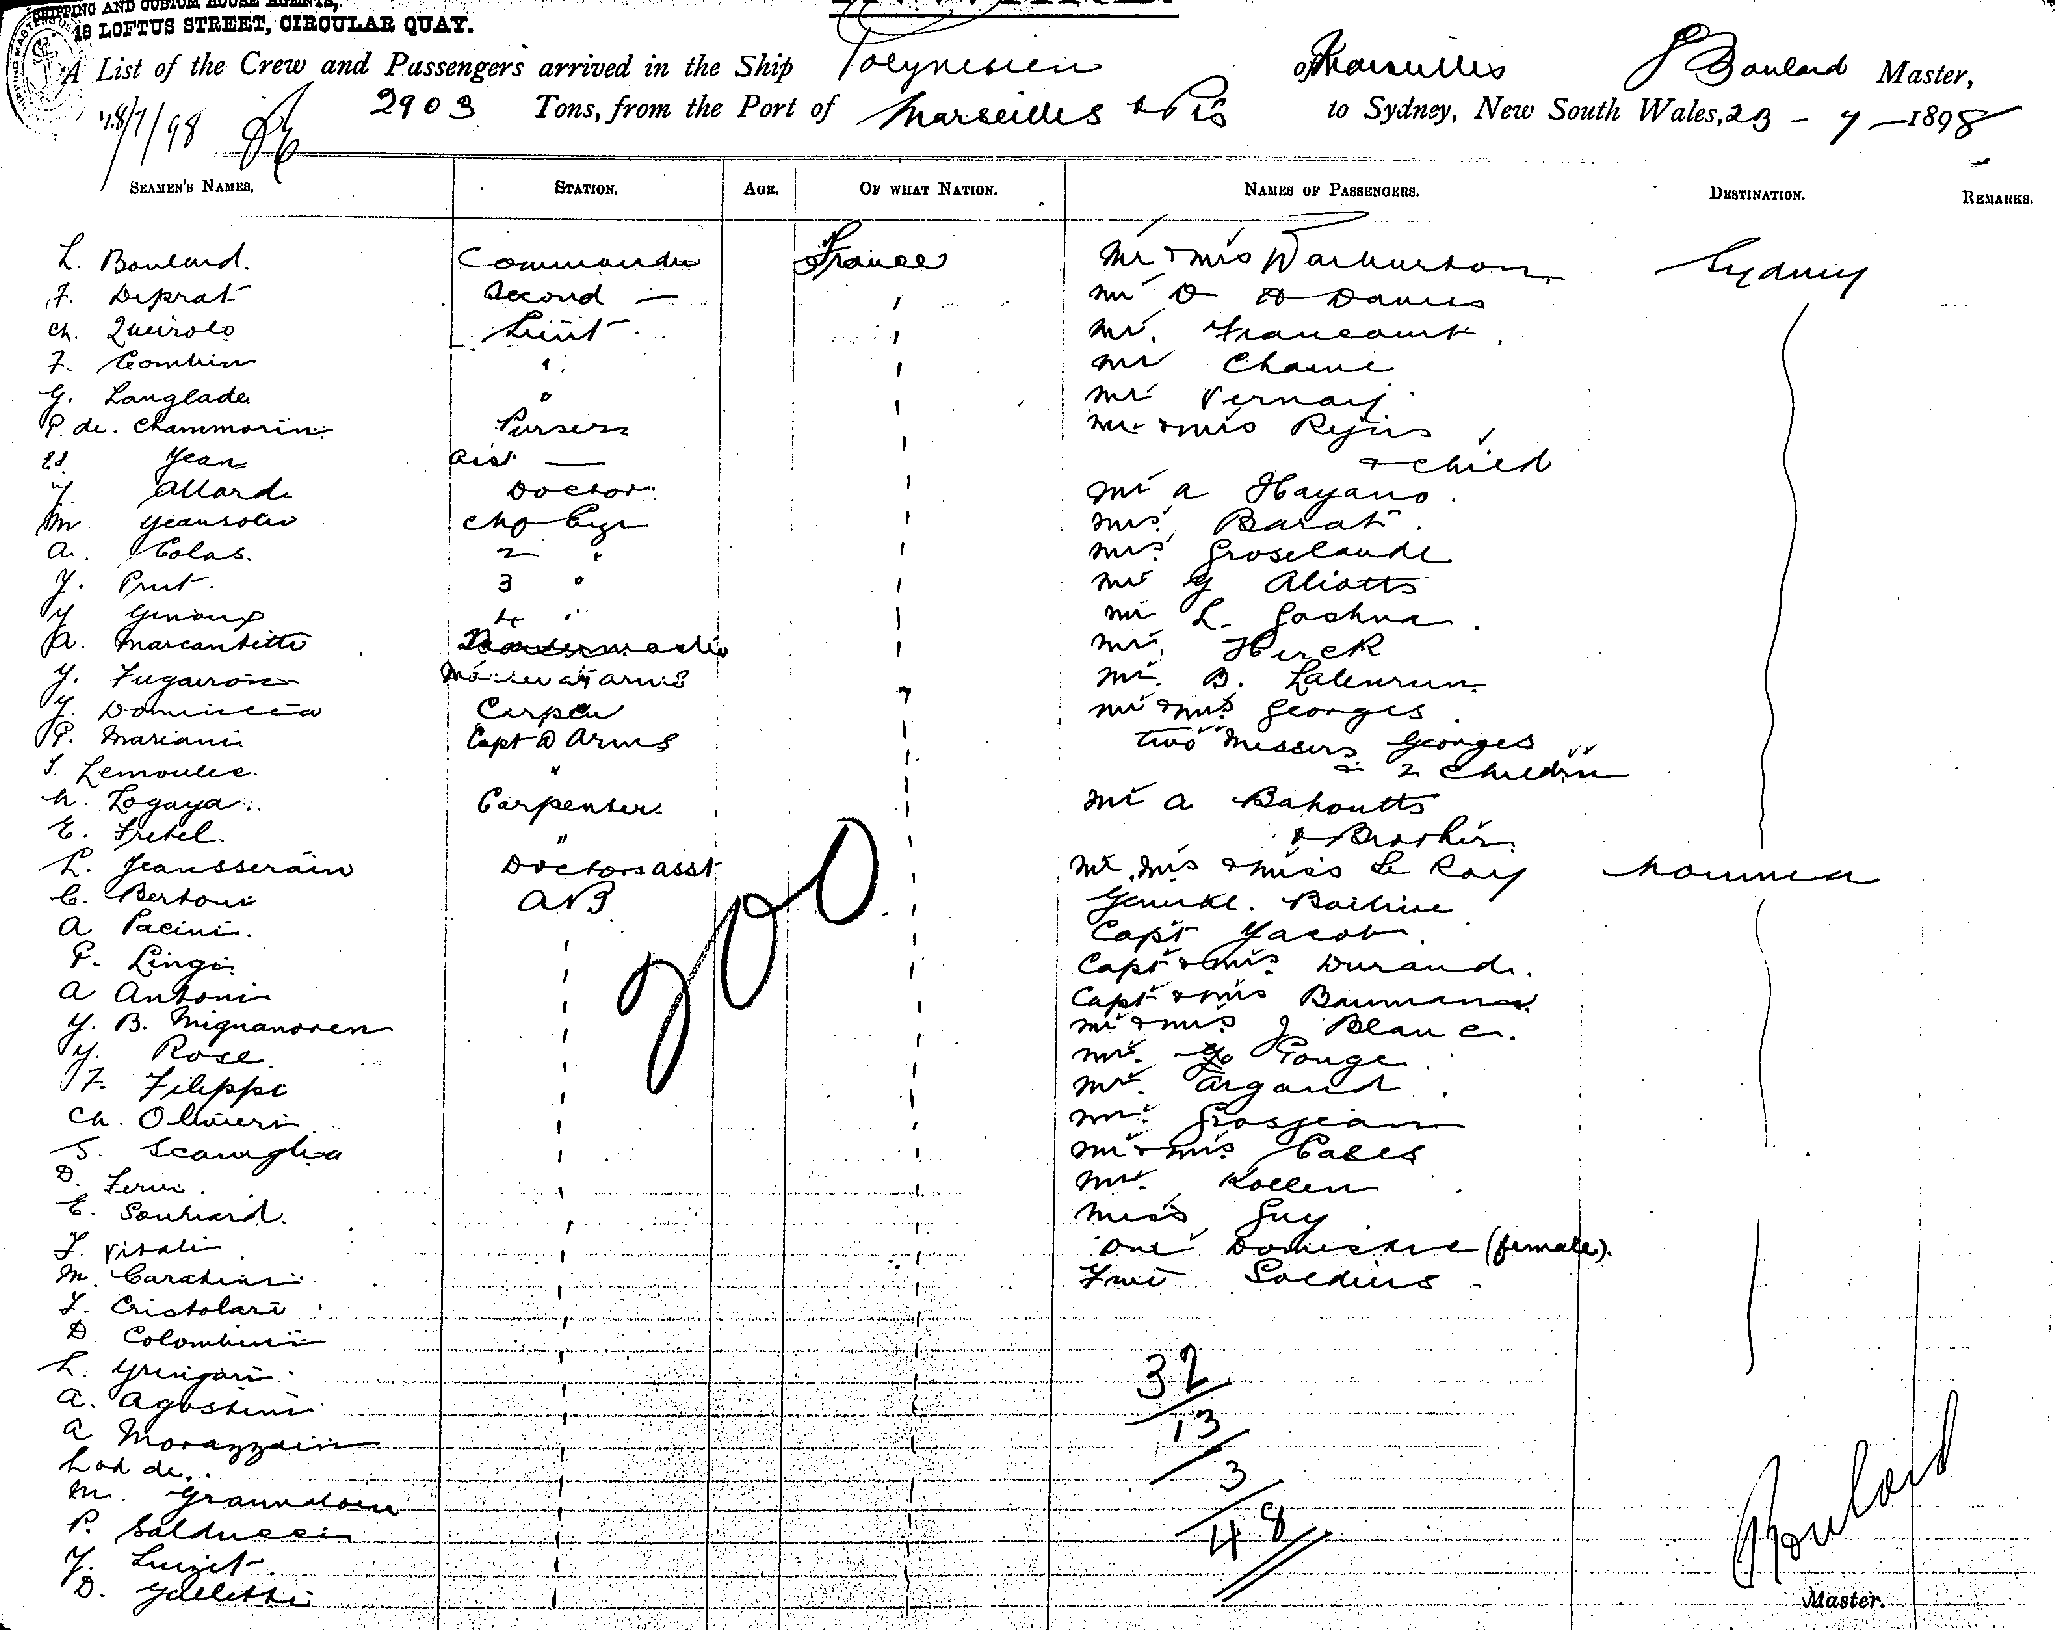 SHIPPING AND CUSTOM HOUSE AGENTS,
18 LOFTUS STREET, CIRCULAR QUAY.
A List of the Crew and Passengers arrived in the Ship Polynesien of Marseilles Boulard Master,
2903 Tons, from the Port of Marseilles to Sydney, New South Wales, 23 - 7 - 1898
SEAMEN'S NAMES. STATION. AGE. OF WHAT NATION. NAMES OF PASSENGERS. DESTINATION. REMARKS.
L. Boulard. Commander France Mr & Mrs Warburton Sydney
F. Deprat Second — Mr D Davies
Ch. Queirolo Lieut. Mr. Francourt
F. Combier " Mr Chaine
G. Langlade " Mr Vernay
P. de Chammorin Purser Mr & Mrs
Jean Asst — & child
Allard Doctor Mr A Hayano
M Jeansolin Chf Eng Mrs Barat
A. Colas 2 " Mrs Groselaude
J. Prut 3 " Mr G Aliotts
J Genoux 4 " Mr L. Joshua
A. Marcantetti Mr. Hirck
J. Fugairon Mr. B.
J. Carpen Mr & Mrs Georges
P. Mariani Capt D Arms two Messers Georges
J. Lemoulec " & 2 children
Logaya Carpenter Mr A Bahoutts
E. Fretel " & Brother
L. Jeansserain Doctors asst Mr, Mrs & Miss Le Ray Noumea
C. Bertoni AB
A Pacini Capt Jacob
P. Lingi Capt & Mrs Durand
A Antoni Capt & Mrs Baumann
J. B. Mr & Mrs J Blanc
J. Rose Mr. Rouge
F. Filippi Mr. Argand
Ch. Olivieri Mr. Grosjean
S. Scaniglia Mr & Mrs Cases
D. Ferri Mr. Kollen
E. Souhard Miss Guy
F. Vitali One Domestic (female).
M. Caratini Soldiers
F. Cristolari
D Colombini
L.
A. Agostini
A Morazzani
M.
P. Balducci
J. Luizet
D. Galletti
700
32
13
3
48
Boulard
Master.